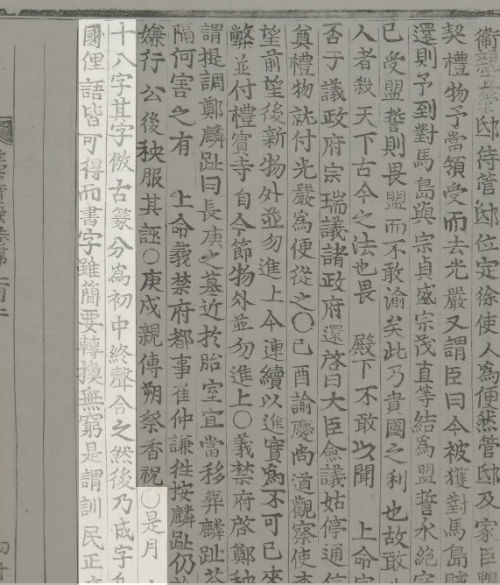 邸待管邸位定徐使人爲便然管邸及家臣
契禮物予當領受而去光嚴又謂臣曰今被獲對馬島賊
還則予到對馬島與宗貞盛宗茂直等結爲盟誓永絶
已受盟誓則畏盟而不敢渝矣此乃貴國之利也故敢
人者殺天下古今之法也畏 殿下不敢以聞 上命
否于議政府宗瑞議諸政府還啓曰大臣僉議姑停通信
奠禮物就付光嚴爲便從之○己酉諭慶尚道觀察使
望前望後新物外並勿進上今連續以進實爲不可已來
弊並付禮賓寺自今節物外並勿進上○義禁府啓鄭種
謂提調鄭麟趾曰長庚之墓近於胎室宜當移葬麟趾答
隔何害之有 上命義禁府都事崔仲謙徃按麟趾仍
嫌行公後秧服其誣○庚戌親傳朔祭香祝○是月
十八字其字倣古篆分爲初中終聲合之然後乃成字
國俚語皆可得而書字雖簡要轉換無窮是謂訓民正音